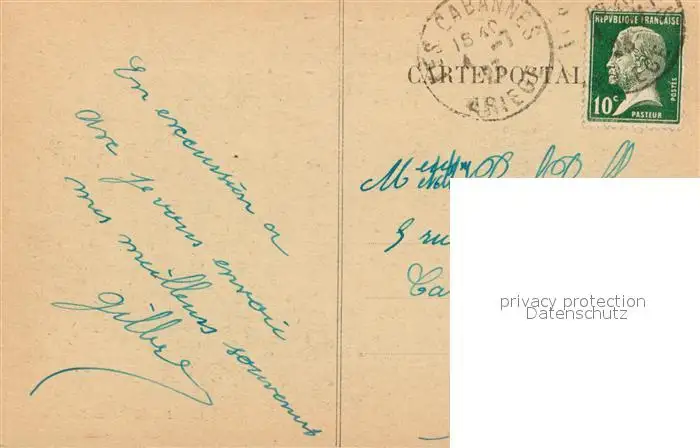 En excursion a
axe je vous envoie
mes meilleurs souvenirs
Gilbre
CARTE POSTAL
LES CABANNES
ARIEGE
REPUBLIQUE FRANÇAISE
POSTES
10c
PASTEUR
M
5 ru
Ca
privacy protection
Datenschutz